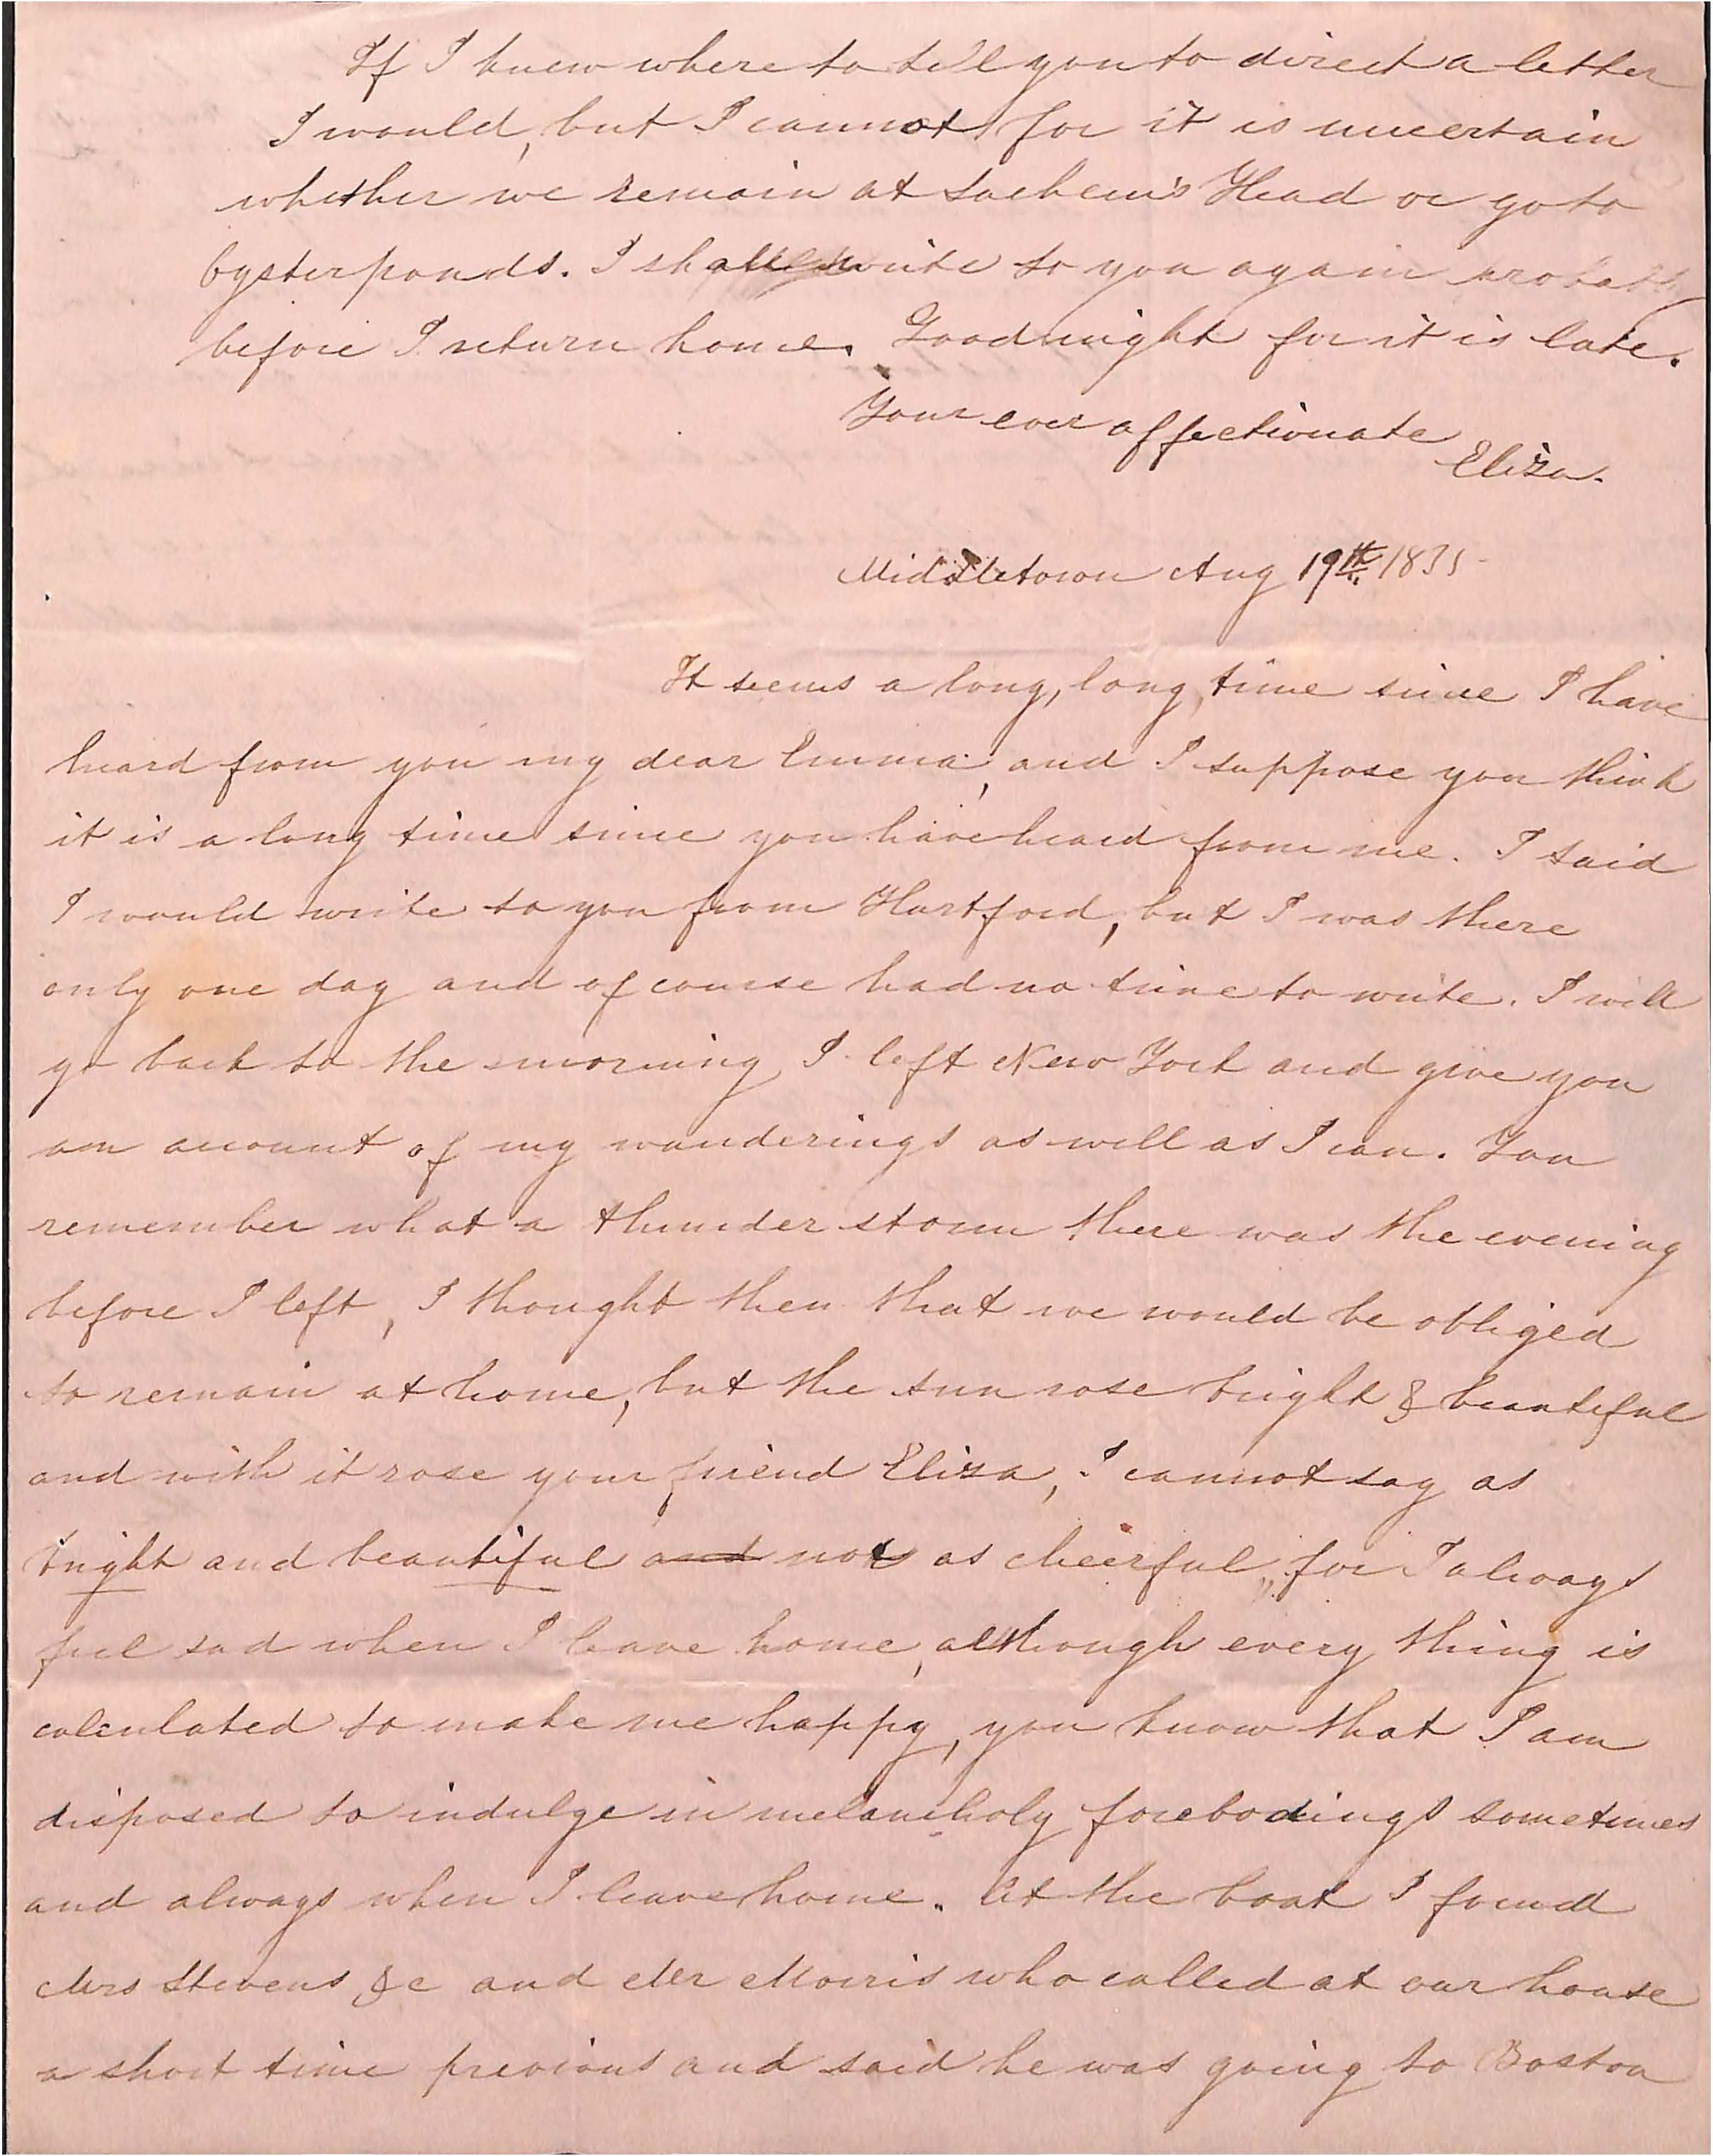 If I knew where to tell you to direct a letter
I would, but I cannot for it is uncertain
whether we remain at Sachem's Head or go to
Oysterponds. I shall write to you again probably
before I return home. Good night for it is late.
Your ever affectionate
Eliza.
Middletown Aug 19th 1835
It seems a long, long, time since I have
heard from you my dear Emma, and I suppose you think
it is a long time since you have heard from me. I said
I would write to you from Hartford, but I was there
only one day and of course had no time to write. I will
go back to the morning I left New York and give you
an account of my wanderings as well as I can. You
remember what a thunder storm there was the evening
before I left, I thought then that we would be obliged
to remain at home, but the sun rose bright & beautiful
and with it rose your friend Eliza, I cannot say as
bright and beautiful and not as cheerful, for I always
feel sad when I leave home, although every thing is
calculated to make me happy, you know that I am
disposed to indulge in melancholy forebodings sometimes
and always when I leave home. At the boat I found
Mrs Stevens &c and Mr Morris who called at our house
a short time previous and said he was going to Boston